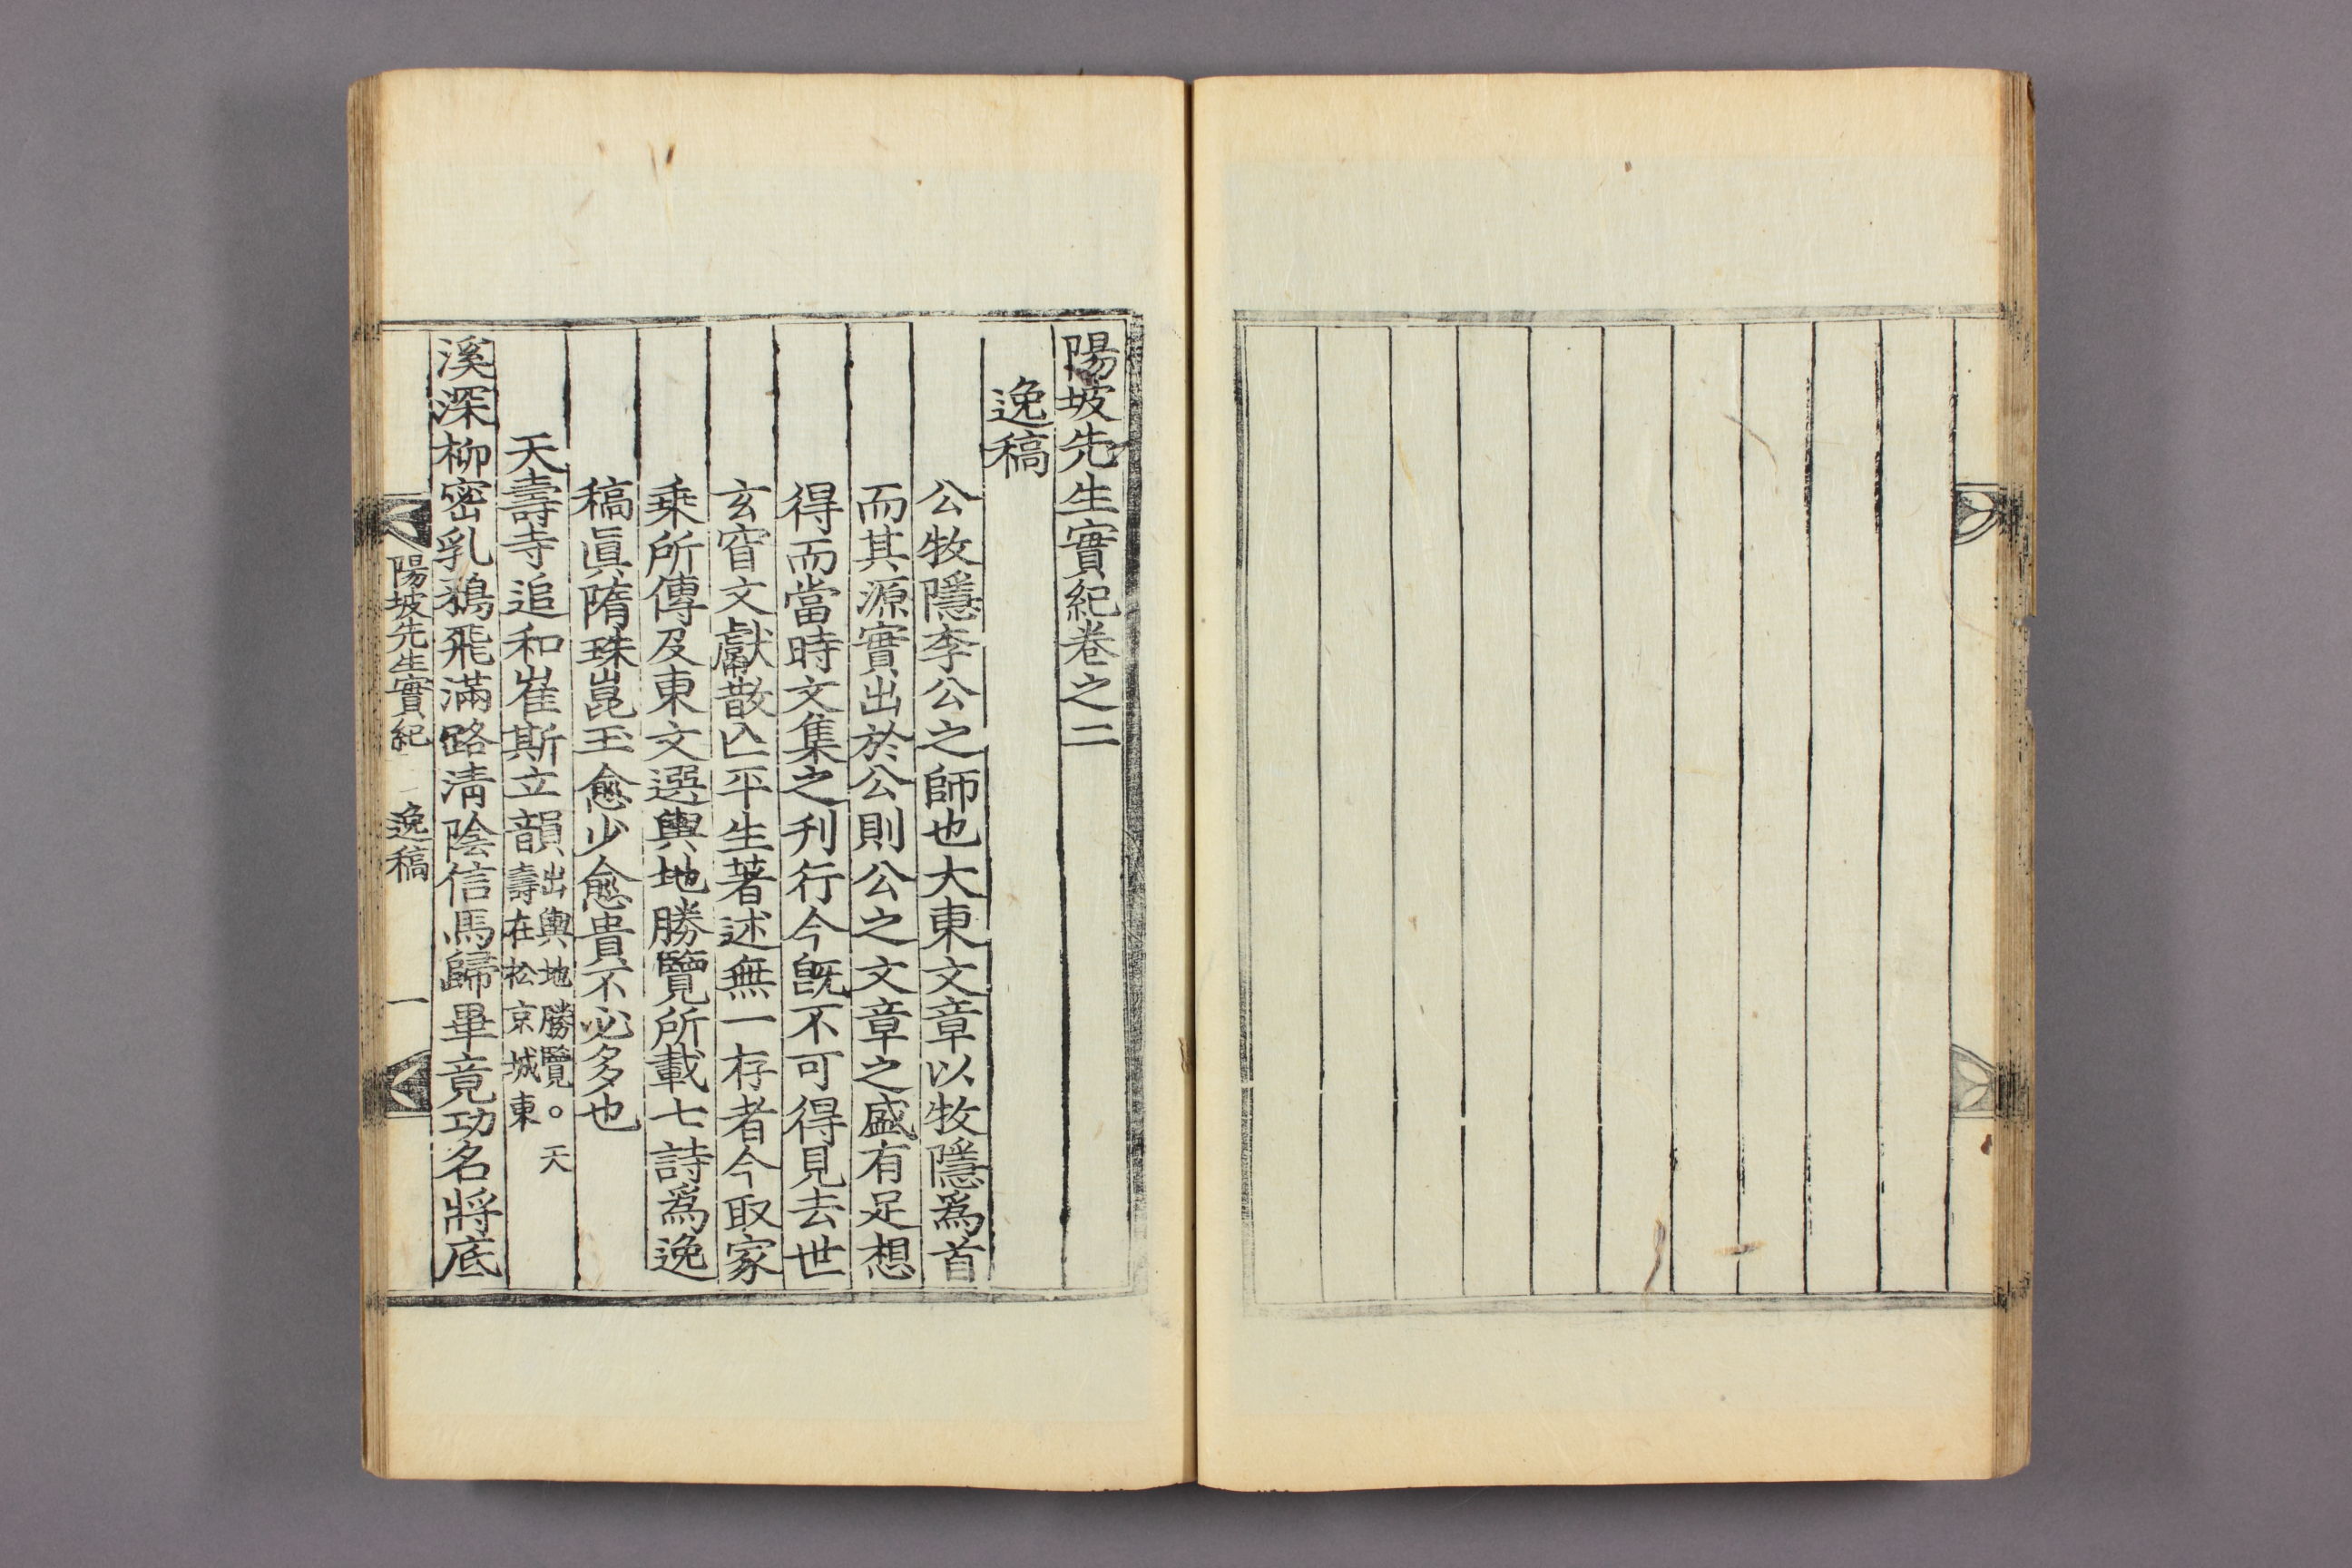 陽坡先生實紀卷之二
逸稿
公牧隱李公之師也大東文章以牧隱爲首
而其源實出於公則公之文章之盛有足想
得而當時文集之刊行今旣不可得見去世
玄窅文獻散亾平生著述無一存者今取家
乗所傳及東文選輿地勝覽所載七詩爲逸
稿眞隋珠崑玉愈少愈貴不必多也
天壽寺追和崔斯立韻 出輿地勝覽。天
壽在松京城東
溪深柳密乳鵶飛滿路淸陰信馬歸畢竟功名將底
陽坡先生實紀 逸稿 一